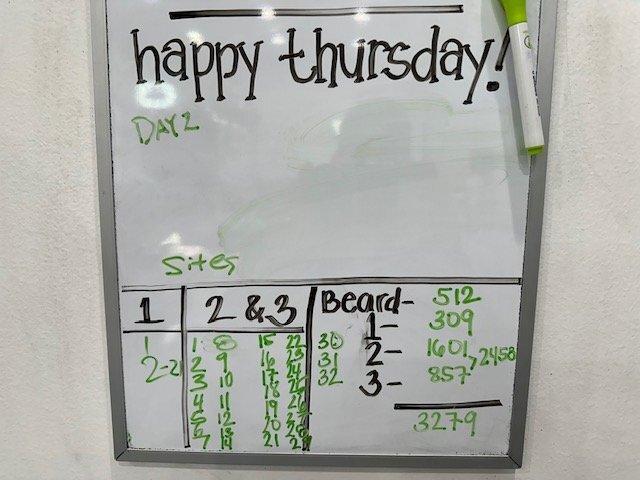 happy thursday!
DAY 2
Sites
1
1
2-21
2 & 3
1 8 15 22
2 9 16 23
3 10 17 24
4 11 18 25
5 12 19 26
6 13 20
7 14 21
30
31
32
Beard- 512
1- 309
2- 1601
3- 857
2458
3279